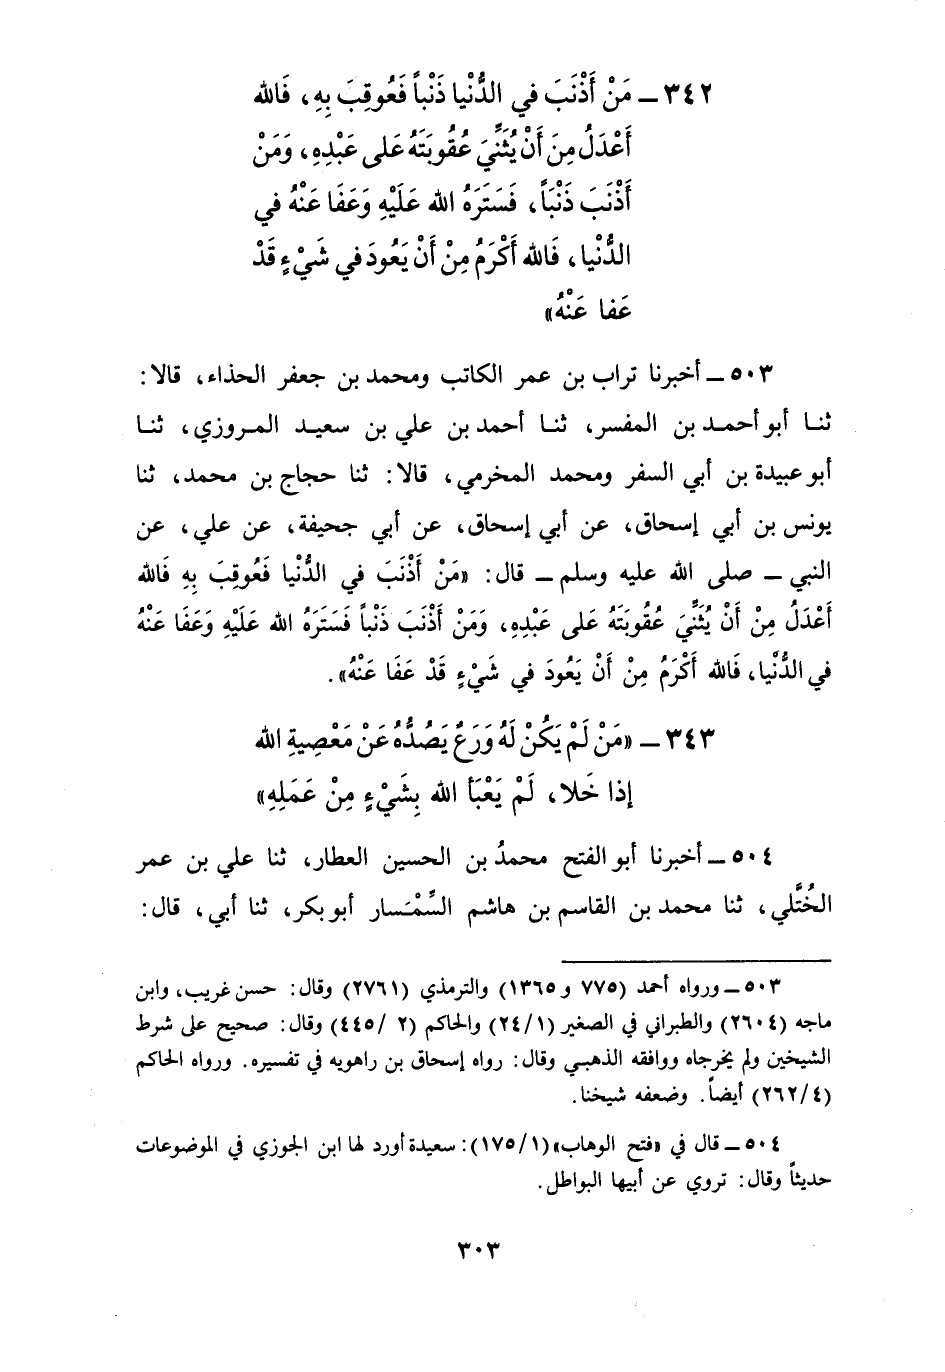 ٣٤٢ ــ مَنْ أَذْنَبَ في الدُّنْيا ذَنْباً فَعُوقِبَ بِهِ، فَالله
أَعْدَلُ مِنَ أَنْ يُثَنِّيَ عُقُوبَتَهُ عَلى عَبْدِهِ، وَمَنْ
أَذْنَبَ ذَنْبَاً، فَسَتَرَهُ الله عَلَيْهِ وَعَفَا عَنْهُ في
الدُّنْيا، فَالله أَكْرَمُ مِنْ أَنْ يَعُودَ في شَيْءٍ قَدْ
عَفا عَنْهُ»
٥٠٣ ــ أخبرنا تراب بن عمر الكاتب ومحمد بن جعفر الحذاء، قالا:
ثنا أبو أحمد بن المفسر، ثنا أحمد بن علي بن سعيد المروزي، ثنا
أبو عبيدة بن أبي السفر ومحمد المخرمي، قالا: ثنا حجاج بن محمد، ثنا
يونس بن أبي إسحاق، عن أبي إسحاق، عن أبي جحيفة، عن علي، عن
النبي ــ صلى الله عليه وسلم ــ قال: «مَنْ أَذْنَبَ في الدُّنْيا فَعُوقِبَ بِهِ فَالله
أَعْدَلُ مِنْ أَنْ يُثَنِّيَ عُقُوبَتَهُ عَلى عَبْدِهِ، وَمَنْ أَذْنَبَ ذَنْباً فَسَتَرَهُ الله عَلَيْهِ وَعَفَا عَنْهُ
في الدُّنْيا، فَالله أَكْرَمُ مِنْ أَنْ يَعُودَ في شَيْءٍ قَدْ عَفَا عَنْهُ».
٣٤٣ ــ «مَنْ لَمْ يَكُنْ لَهُ وَرَعٌ يَصُدُّهُ عَنْ مَعْصِيةِ الله
إذا خَلا، لَمْ يَعْبَأ الله بِشَيْءٍ مِنْ عَمَلِهِ»
٥٠٤ ــ أخبرنا أبو الفتح محمدُ بن الحسين العطار، ثنا علي بن عمر
الخُتَّلي، ثنا محمد بن القاسم بن هاشم السِّمْسَار أبو بكر، ثنا أبي، قال:
٥٠٣ ــ ورواه أحمد (٧٧٥ و ١٣٦٥) والترمذي (٢٧٦١) وقال: حسن غريب، وابن
ماجه (٢٦٠٤) والطبراني في الصغير (٢٤/١) والحاكم (٢ /٤٤٥) وقال: صحيح على شرط
الشيخين ولم يخرجاه ووافقه الذهبي وقال: رواه إسحاق بن راهويه في تفسيره. ورواه الحاكم
(٢٦٢/٤) أيضاً. وضعفه شيخنا.
٥٠٤ ــ قال في «فتح الوهاب» (١٧٥/١): سعيدة أورد لها ابن الجوزي في الموضوعات
حديثاً وقال: تروي عن أبيها البواطل.
٣٠٣